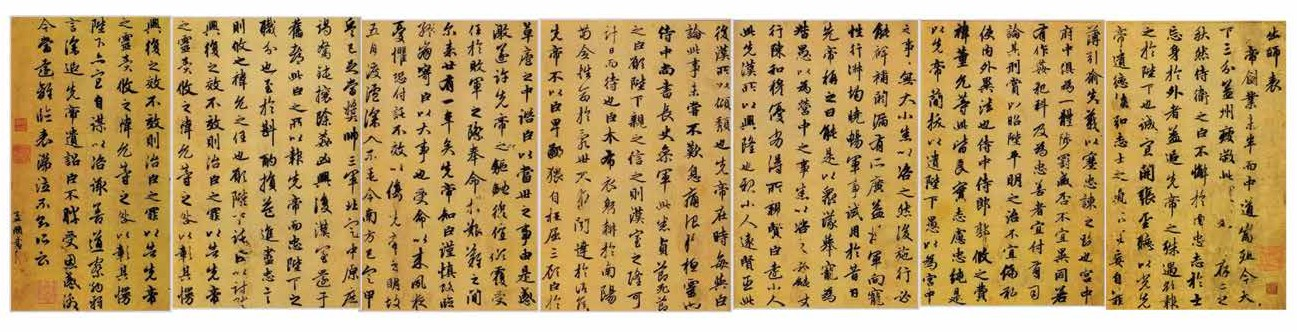 出師表
帝創業未半而中道崩殂今天
下三分益州疲敝此存亡之
秋然侍衛之臣不懈於內忠志於士
忘身於外者蓋追先帝之殊遇欲報
之於陛下也誠宜開張聖聽以光先
帝遺德恢弘志士之氣不宜妄自菲
薄引喻失義以塞忠諫之路也宮中
府中俱為一體陟罰臧否不宜異同若
有作姦犯科及為忠善者宜付有司
論其刑賞以昭陛下平明之治不宜偏私
使內外異法也侍中侍郎郭攸之費
禕董允等此皆良實志慮忠純是
以先帝簡拔以遺陛下愚以為宮中
之事無大小悉以咨之然後施行必
能裨補闕漏有所廣益將軍向寵
性行淑均曉暢軍事試用於昔日
先帝稱之曰能是以眾議舉寵為
督愚以為營中之事悉以咨之必能使
行陳和穆優劣得所也親賢臣遠小人
此先漢所以興隆也親小人遠賢臣此
後漢所以傾頹也先帝在時每與臣
論此事未嘗不歎息痛恨於桓靈也
侍中尚書長史參軍此悉貞亮死節
之臣願陛下親之信之則漢室之隆可
計日而待也臣本布衣躬耕於南陽
苟全性命於亂世不求聞達於諸侯
先帝不以臣卑鄙猥自枉屈三顧臣於
草廬之中諮臣以當世之事由是感
激遂許先帝以驅馳後值傾覆受
任於敗軍之際奉命於危難之間
爾來廿有一年矣先帝知臣謹慎故臨
崩寄臣以大事也受命以來夙夜
憂懼恐付託不效以傷先帝之明故
五月渡瀘深入不毛今南方已定甲
兵已足當獎帥三軍北定中原庶
竭駑鈍攘除姦凶興復漢室還于
舊都此臣之所以報先帝而忠陛下之
職分也至於斟酌損益進盡忠言
則攸之禕允之任也願陛下託臣以討賊
興復之效不效則治臣之罪以告先帝
之靈責攸之禕允等之咎以彰其慢
興復之效不效則治臣之罪以告先帝
之靈責攸之禕允等之咎以彰其慢
陛下亦宜自謀以諮諏善道察納雅
言深追先帝遺詔臣不勝受恩感激
今當遠離臨表涕泣不知所云
孟頫書